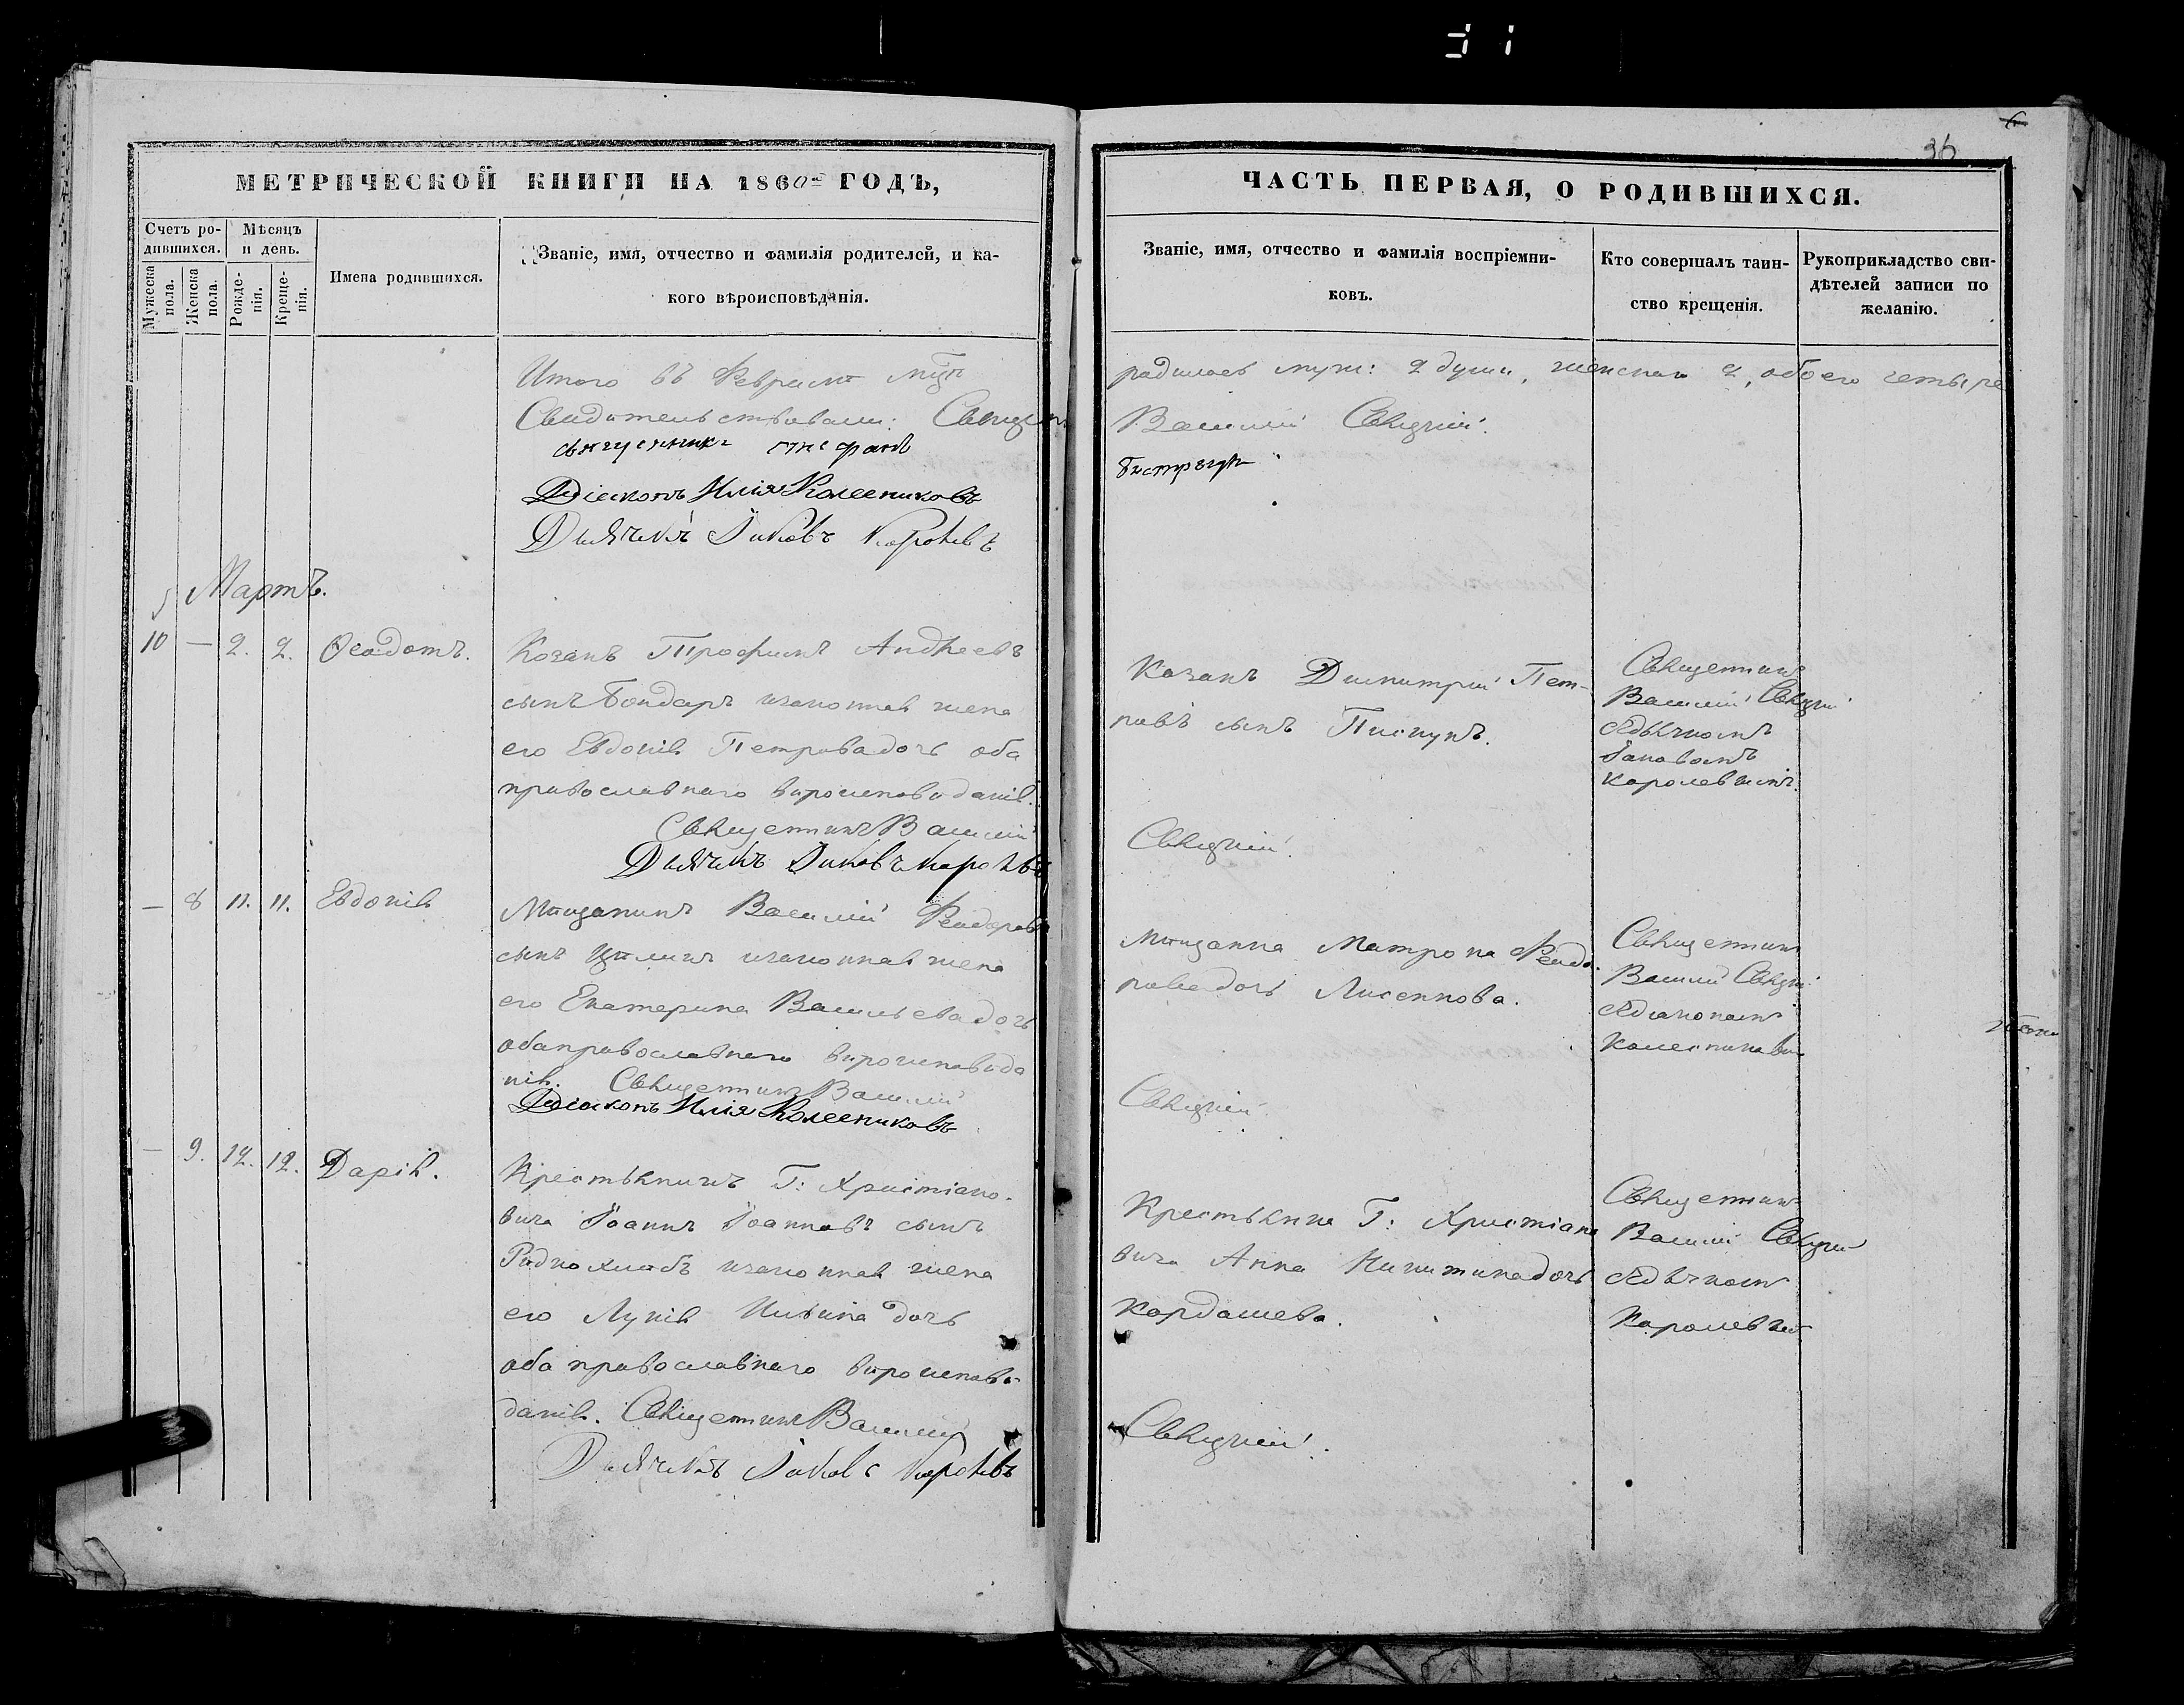 36
МЕТРИЧЕСКОЙ КНИГИ НА 1860 ГОДЪ,
Счетъ ро-
дившихся.
Мѣсяцъ
и день.
Мужеска
пола.
Женска
пола.
Рожде-
нія.
Креще-
нія.
Имена родившихся.
Званіе, имя, отчество и фамилія родителей, и ка-
кого вѣроисповѣданія.
ЧАСТЬ ПЕРВАЯ, О РОДИВШИХСЯ.
Званіе, имя, отчество и фамилія воспріемни-
ковъ.
Кто совершалъ таин-
ство крещенія.
Рукоприкладство сви-
дѣтелей записи по
желанію.
Итого въ Февралѣ родилось муж: 2 души, женска 2, обоего четыре
Свидѣтельствовали: Василій
священникъ Стефанъ
Діаконъ Илія Колесниковъ
Дьячекъ Іаковъ Королевъ
Мартъ.
10 — 2. 2. Ѳеодотъ.
Козакъ Трофимъ Андреевъ
сынъ Бондарь изаконная жена
его Евдокія Петровадочь оба
православнаго вѣроисповѣданія.
Священникъ Василій
Дьячекъ Іаковъ Королевъ
Козакъ Димитрій Пет-
ровъ сынъ Пискунъ.
Священникъ
Василій
сдьячкомъ
Іаковомъ
Королевымъ.
— 8 11. 11. Евдокія
Мѣщанинъ Василій Феодоровъ
сынъ изаконная жена
его Екатерина Васильевадочь
обаправославнаго вѣроисповѣда
нія. Священникъ Василій
Діаконъ Илія Колесниковъ
Мѣщанка Матрона Феодо-
ровадочь Лисенкова.
Священникъ
Василій
сдіакономъ
— 9. 12. 12. Дарія.
Крестьянинъ Г: Христіано-
вича Іоаннъ Іоанновъ сынъ
Риднохлѣбъ изаконная жена
его Лукія Ильина дочь
оба православнаго вѣроисповѣ
данія. Священникъ Василій
Дьячекъ Іаковъ Королевъ
Крестьянка Г: Христіано
вича Анна Никитинадочь
Кордашева.
Священникъ
Василій
сдьячкомъ
Королевымъ